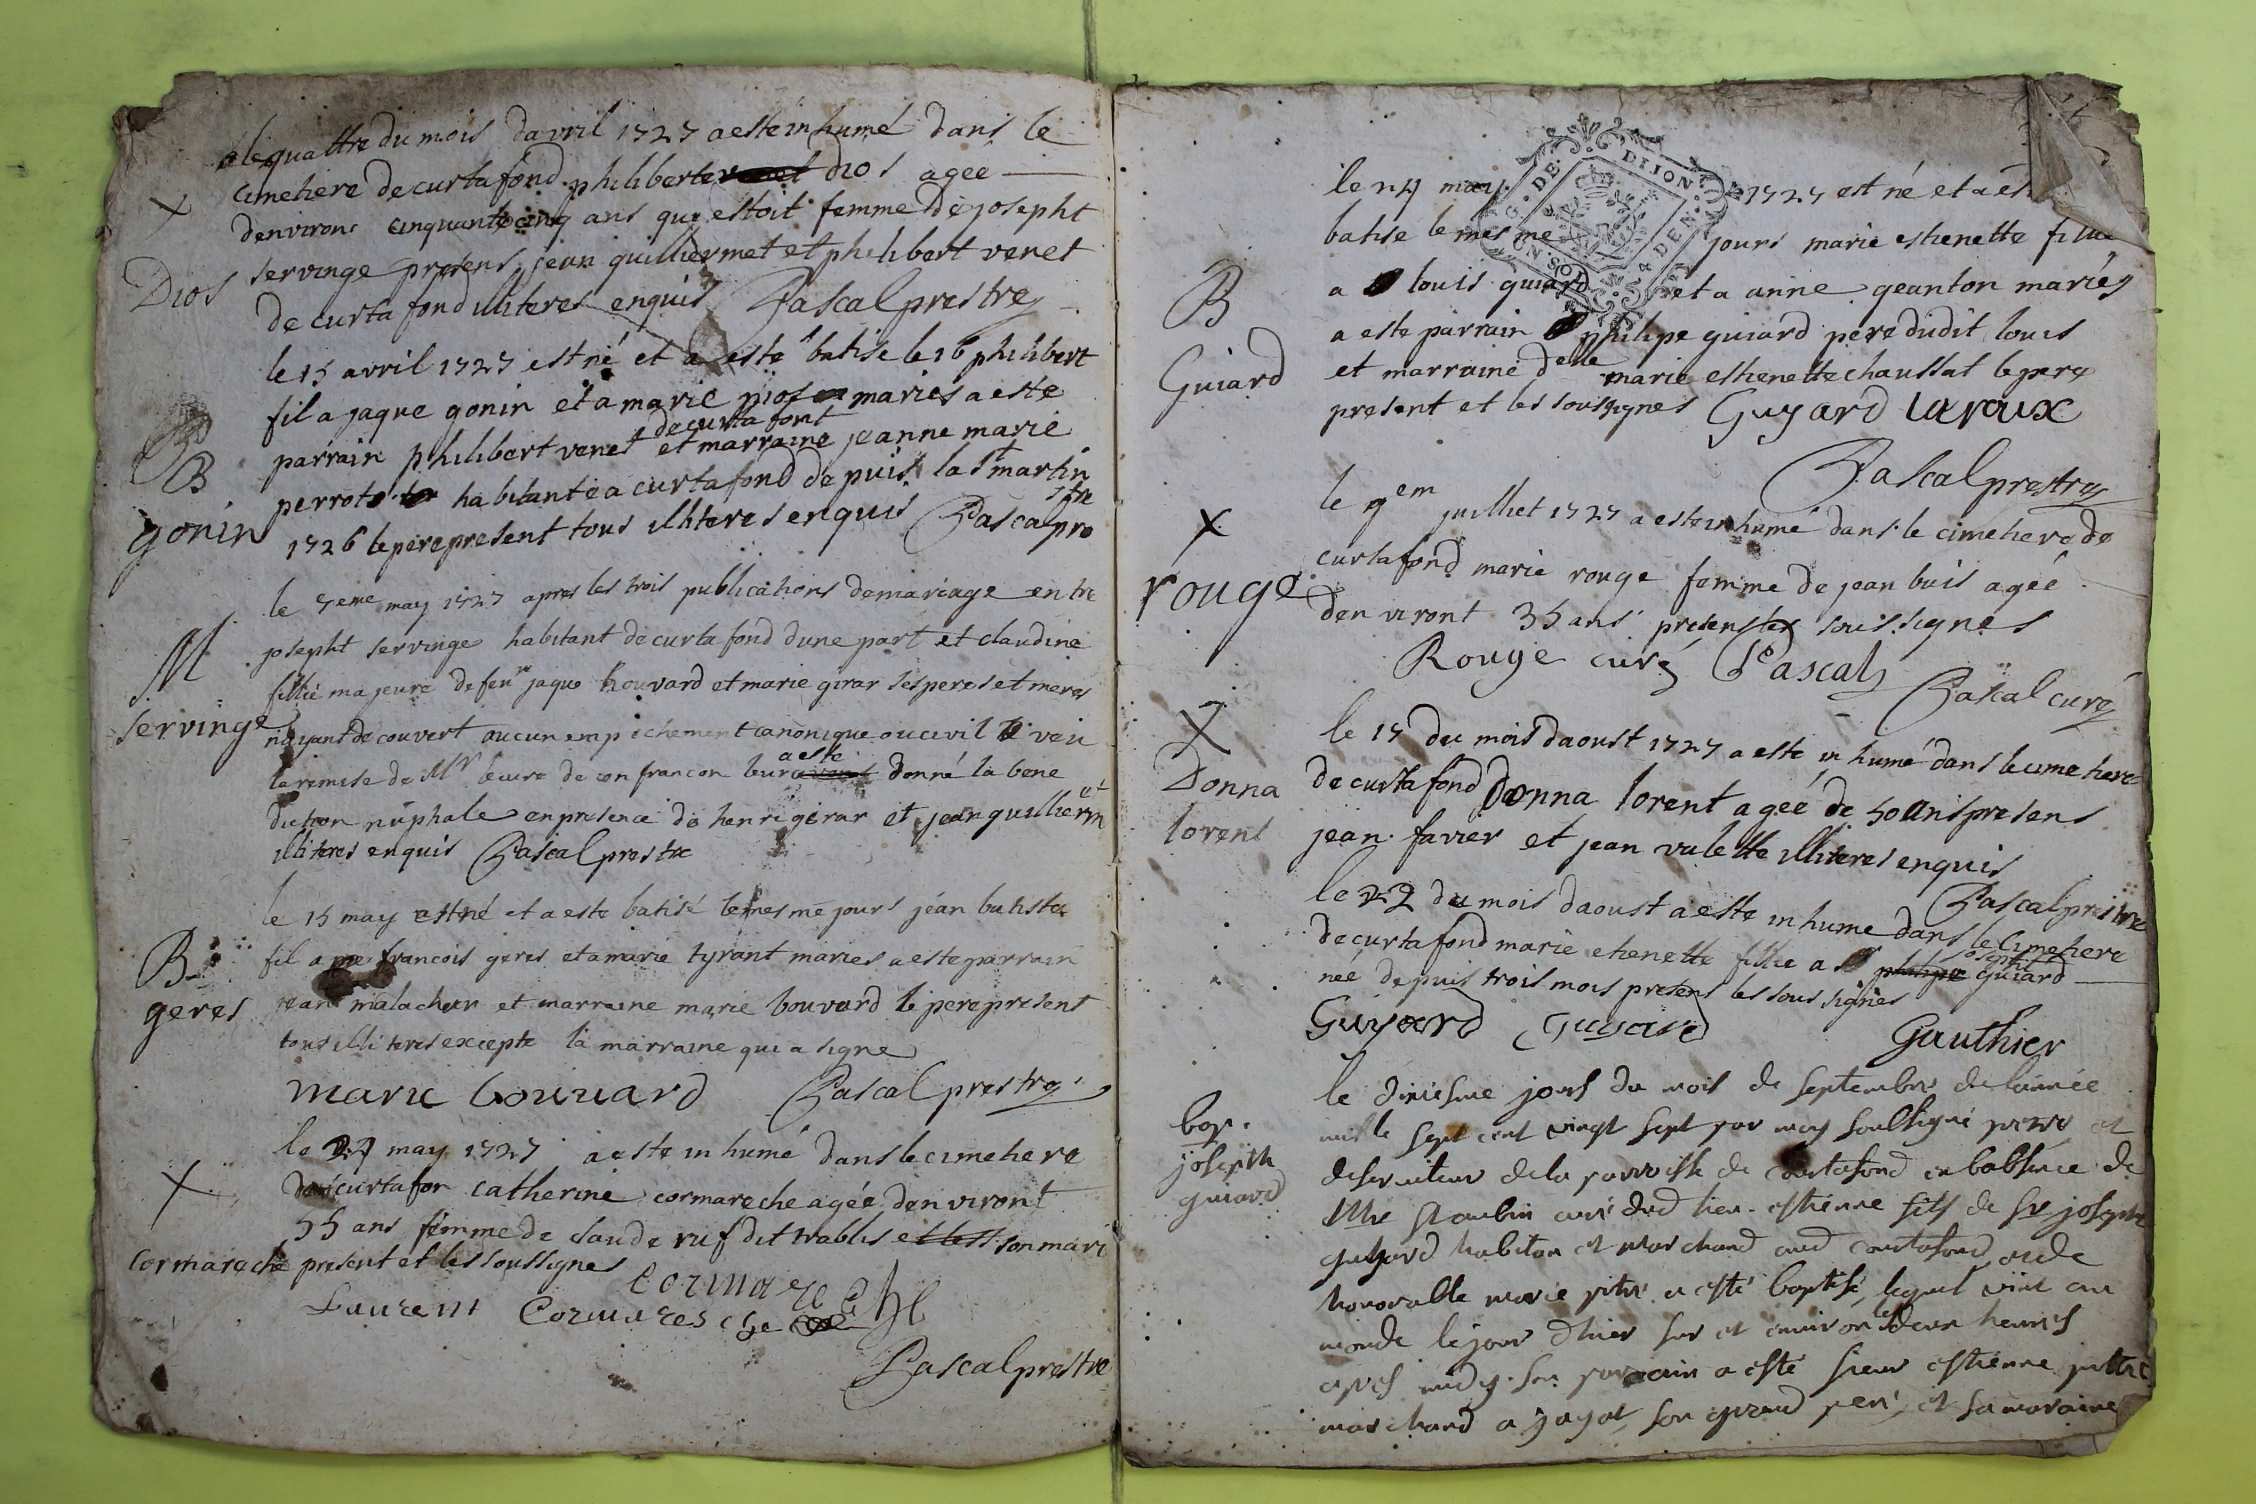 le quattre du mois davril 1727 a este inhumé dans le
cimetiere de curtafond philiberte dios agee
denviront cinquante cinq ans qui estoit femme de josepht
servinge presens jean guilliermet et philibert venet
de curtafond illiteres enquis Pascal prestre
X
Dios
le 15 avril 1727 est né et a este batise le 16 philibert
fil a jaque gonin et a marie dios mariés a este
de curtafont
parrain philibert venet et marraine jeanne marie
perrot habitante a curtafond depuis la st martin
1726 le pere present tous illiteres enquis Pascal prestre
B
gonin
le 7eme may 1727 apres les trois publications de mariage entre
josepht servinge habitant de curtafond dune part et claudine
fillie majeure de feu jaque bouvard et marie girar ses peres et meres
nayant decouvert aucun empechement canonique ou civil veu
la remise de Mr le cure de confrancon leur a este donné la bene
diction nuphale en presence de henri girar et jean guilliermet
illiteres enquis Pascal prestre
M
servinge
le 15 may est né et a este batisé le mesme jours jean batiste
fil a francois geres et a marie tyrant maries a este parrain
jean malachar et marraine marie bouvard le pere present
tous illiteres excepte la marraine qui a signe
marie bouuard Pascal prestre
B
geres
le 27 may 1727 a este inhumé dans le cimetiere
de curtafon catherine cormareche agée denviront
55 ans femme de claude ruf dit trablis et les son mari
present et les soussignes
Laurent Cormareche
Pascal prestre
X
cormareche
G. DE DIJON
4 DEN.
UN SOL
le 24 may 1727 est né et a este
batise le mesme jours marie estienette fillie
a louis guiard et a anne geanton mariés
a este parrain philipe guiard pere dudit louis
et marraine delle marie estienette chaussat le pere
present et les soussignes Guyard laroux
Pascal prestre
B
Guiard
le 9em juilliet 1727 a este inhumé dans le cimetiere de
curtafond marie rouge femme de jean buis agée
denviront 35 ans presens les soussignes
Rouge curé Pascal
Pascal curé
X
rouge
le 17 du mois daoust 1727 a este inhumé dans le cimetiere
de curtafond Donna lorent agée de 50 ans presens
jean favier et jean vulette illiteres enquis
Pascal prestre
X
Donna
lorent
le 22 du mois daoust a este inhume dans le cimetiere
de curtafond marie etienette fillie a philipe josepht guiard
née depuis trois mois presens les soussignés
Guyard Guyard Gauthier
le dixiesme jours du mois de septembre de lannée
mille sept cent vingt sept par moy soussigné pretre et
deserviteur de la parroisse de courtafond en labsence de
Mre St aubin curé dud lieu estienne fils de sr joseph
guyard habitan et marchand aud courtafond et de
honorable marie pitré a esté baptisé, lequel vint au
monde le jour dhier sur et environ les deux heures
apres midy. son parrain a esté sieur estienne pittre
marchand a jayat, son grand pere, et sa maraine
bap.
joseph
guiard